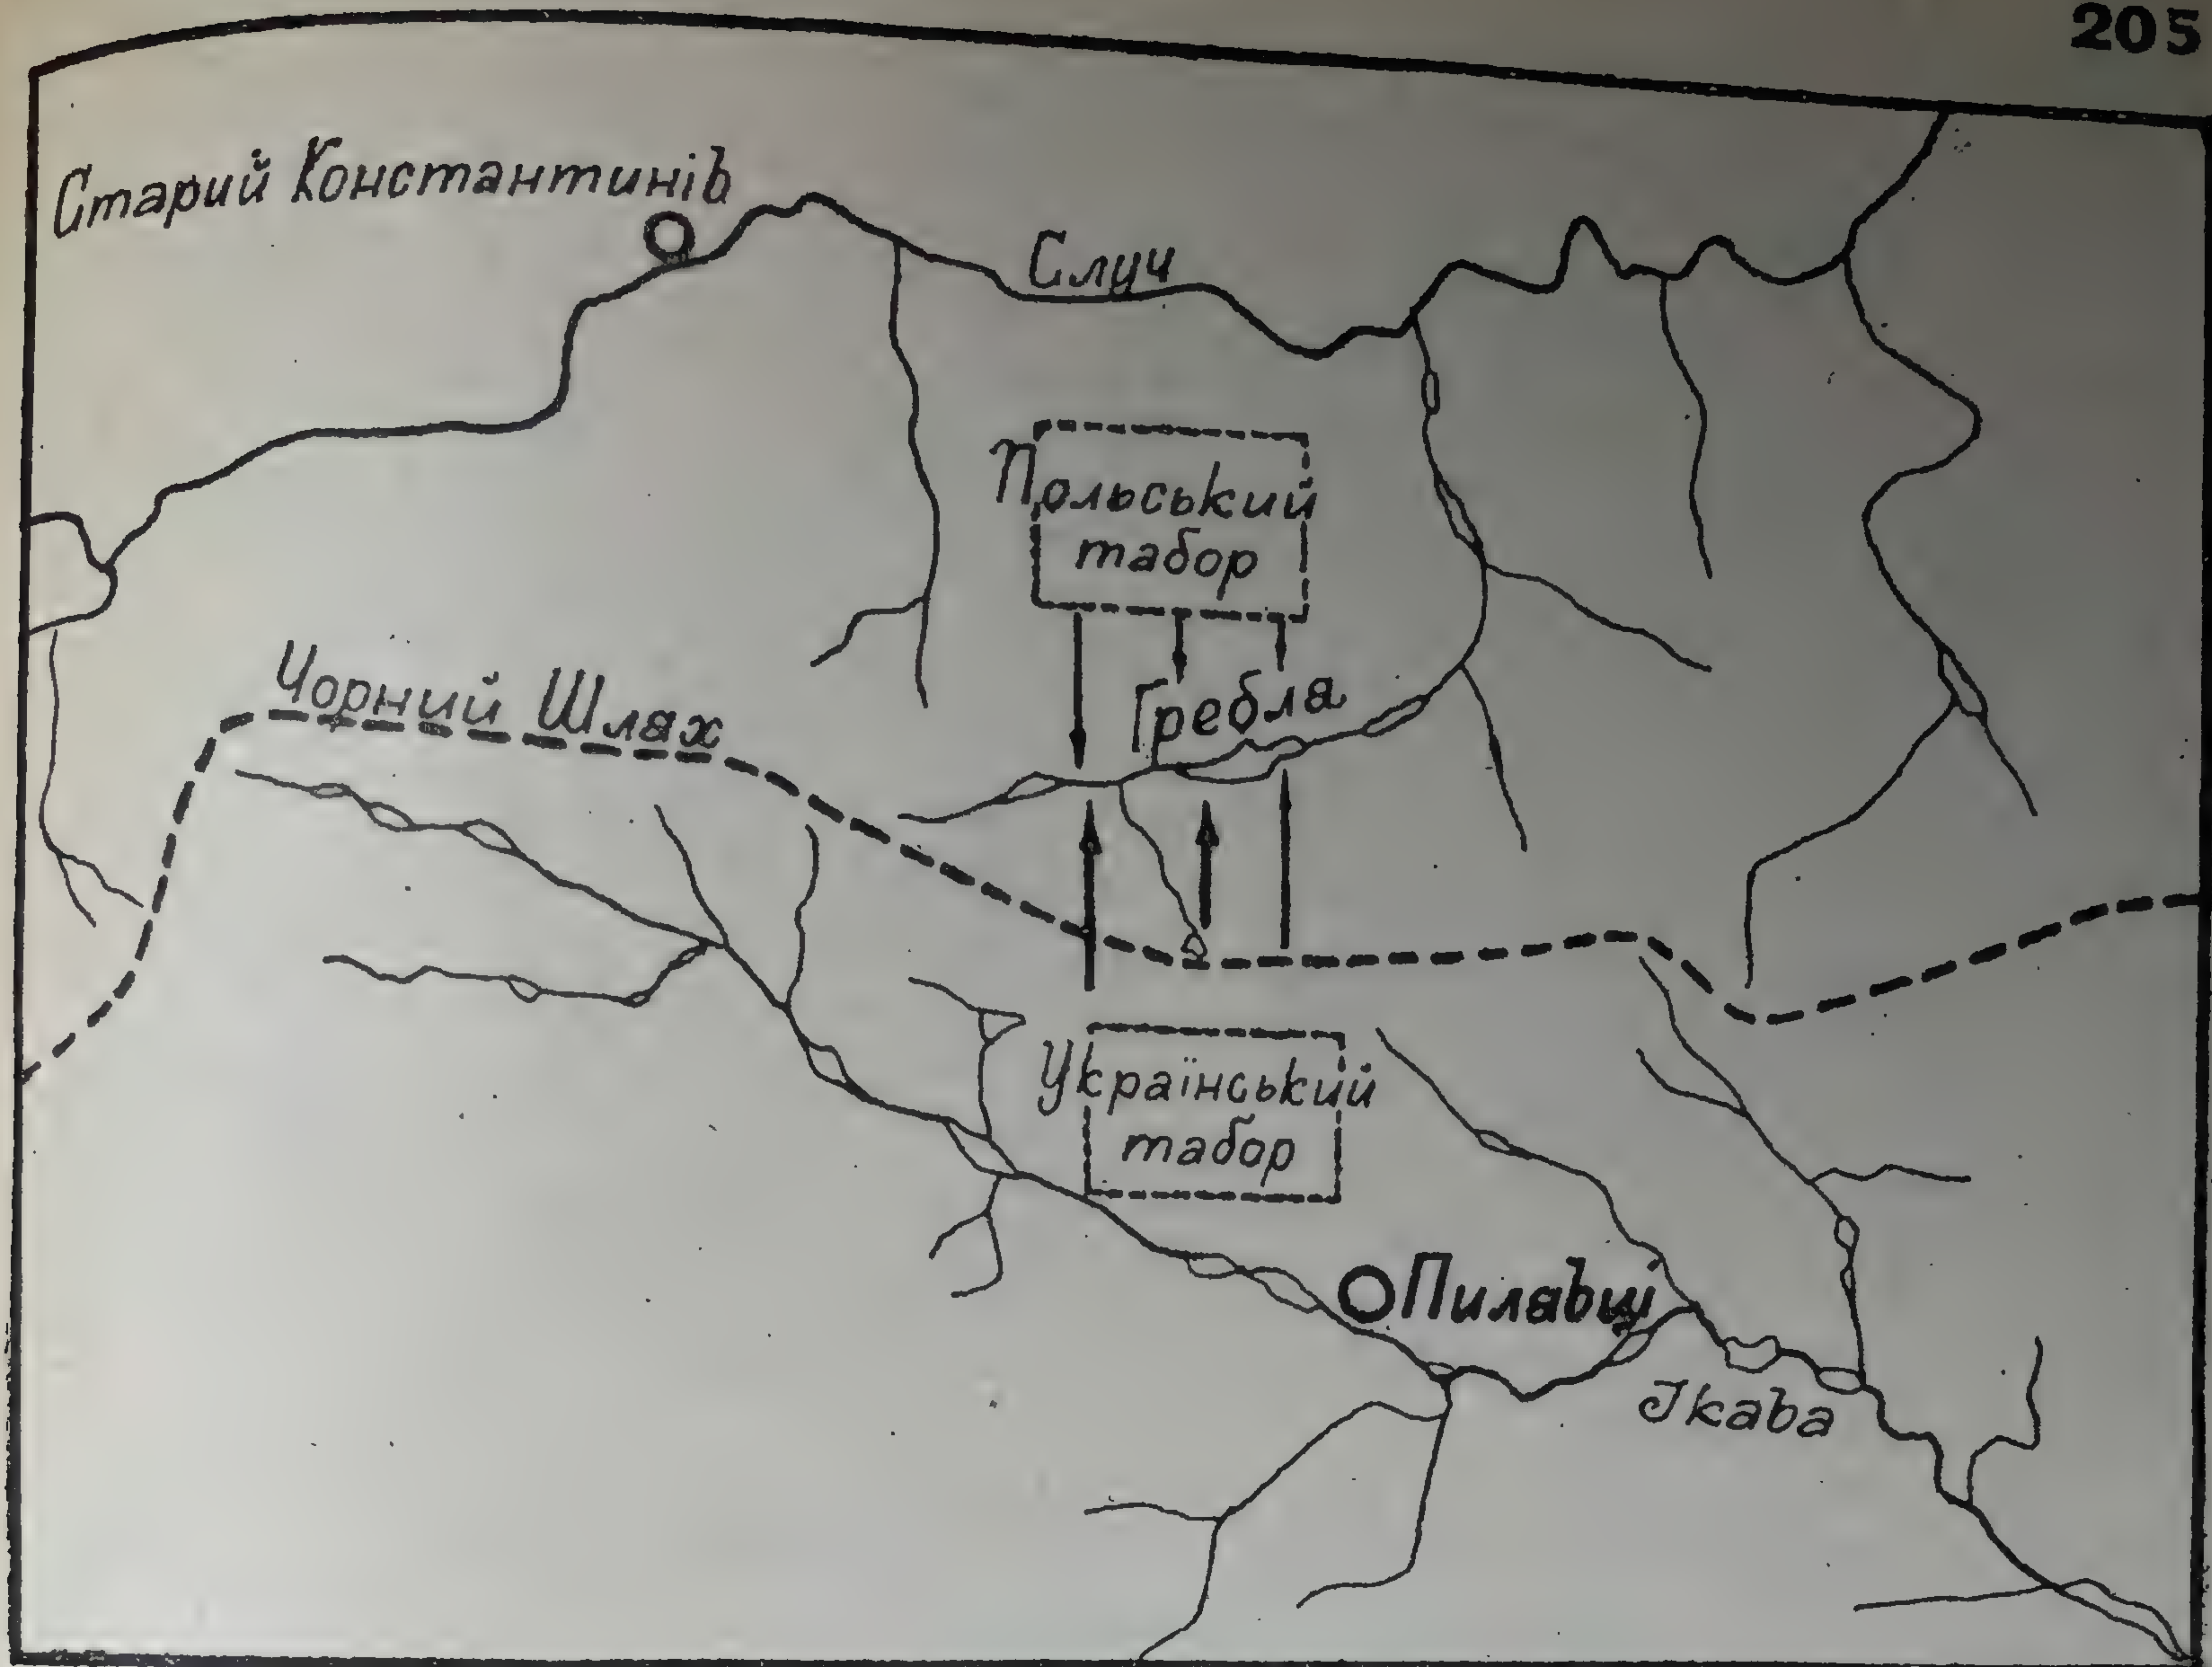 205
Старий Константинів
Случ
Польський
табор
Чорний Шлях
Гребла
Український
табор
Пилавці
Ікава